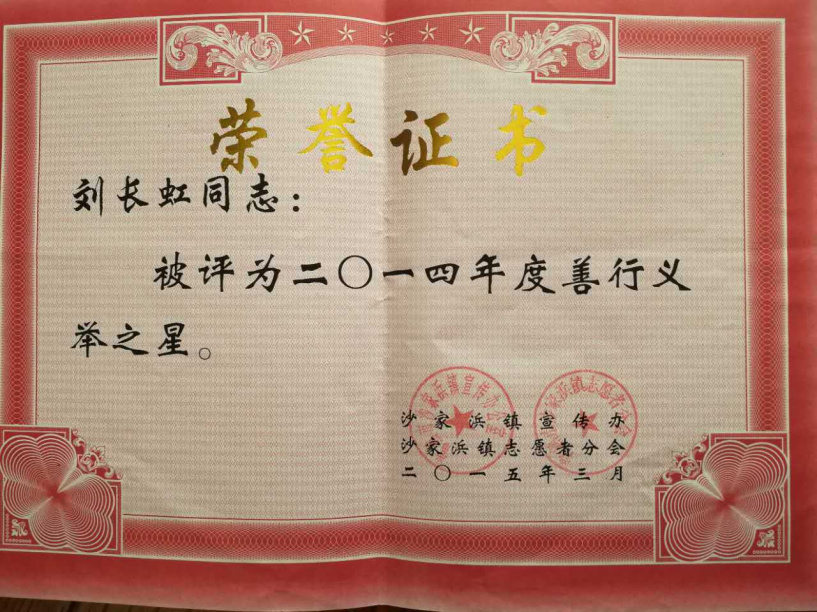 荣誉证书
刘长虹同志：
被评为二〇一四年度善行义
举之星。
沙家浜镇宣传办
沙家浜镇志愿者分会
二〇一五年三月